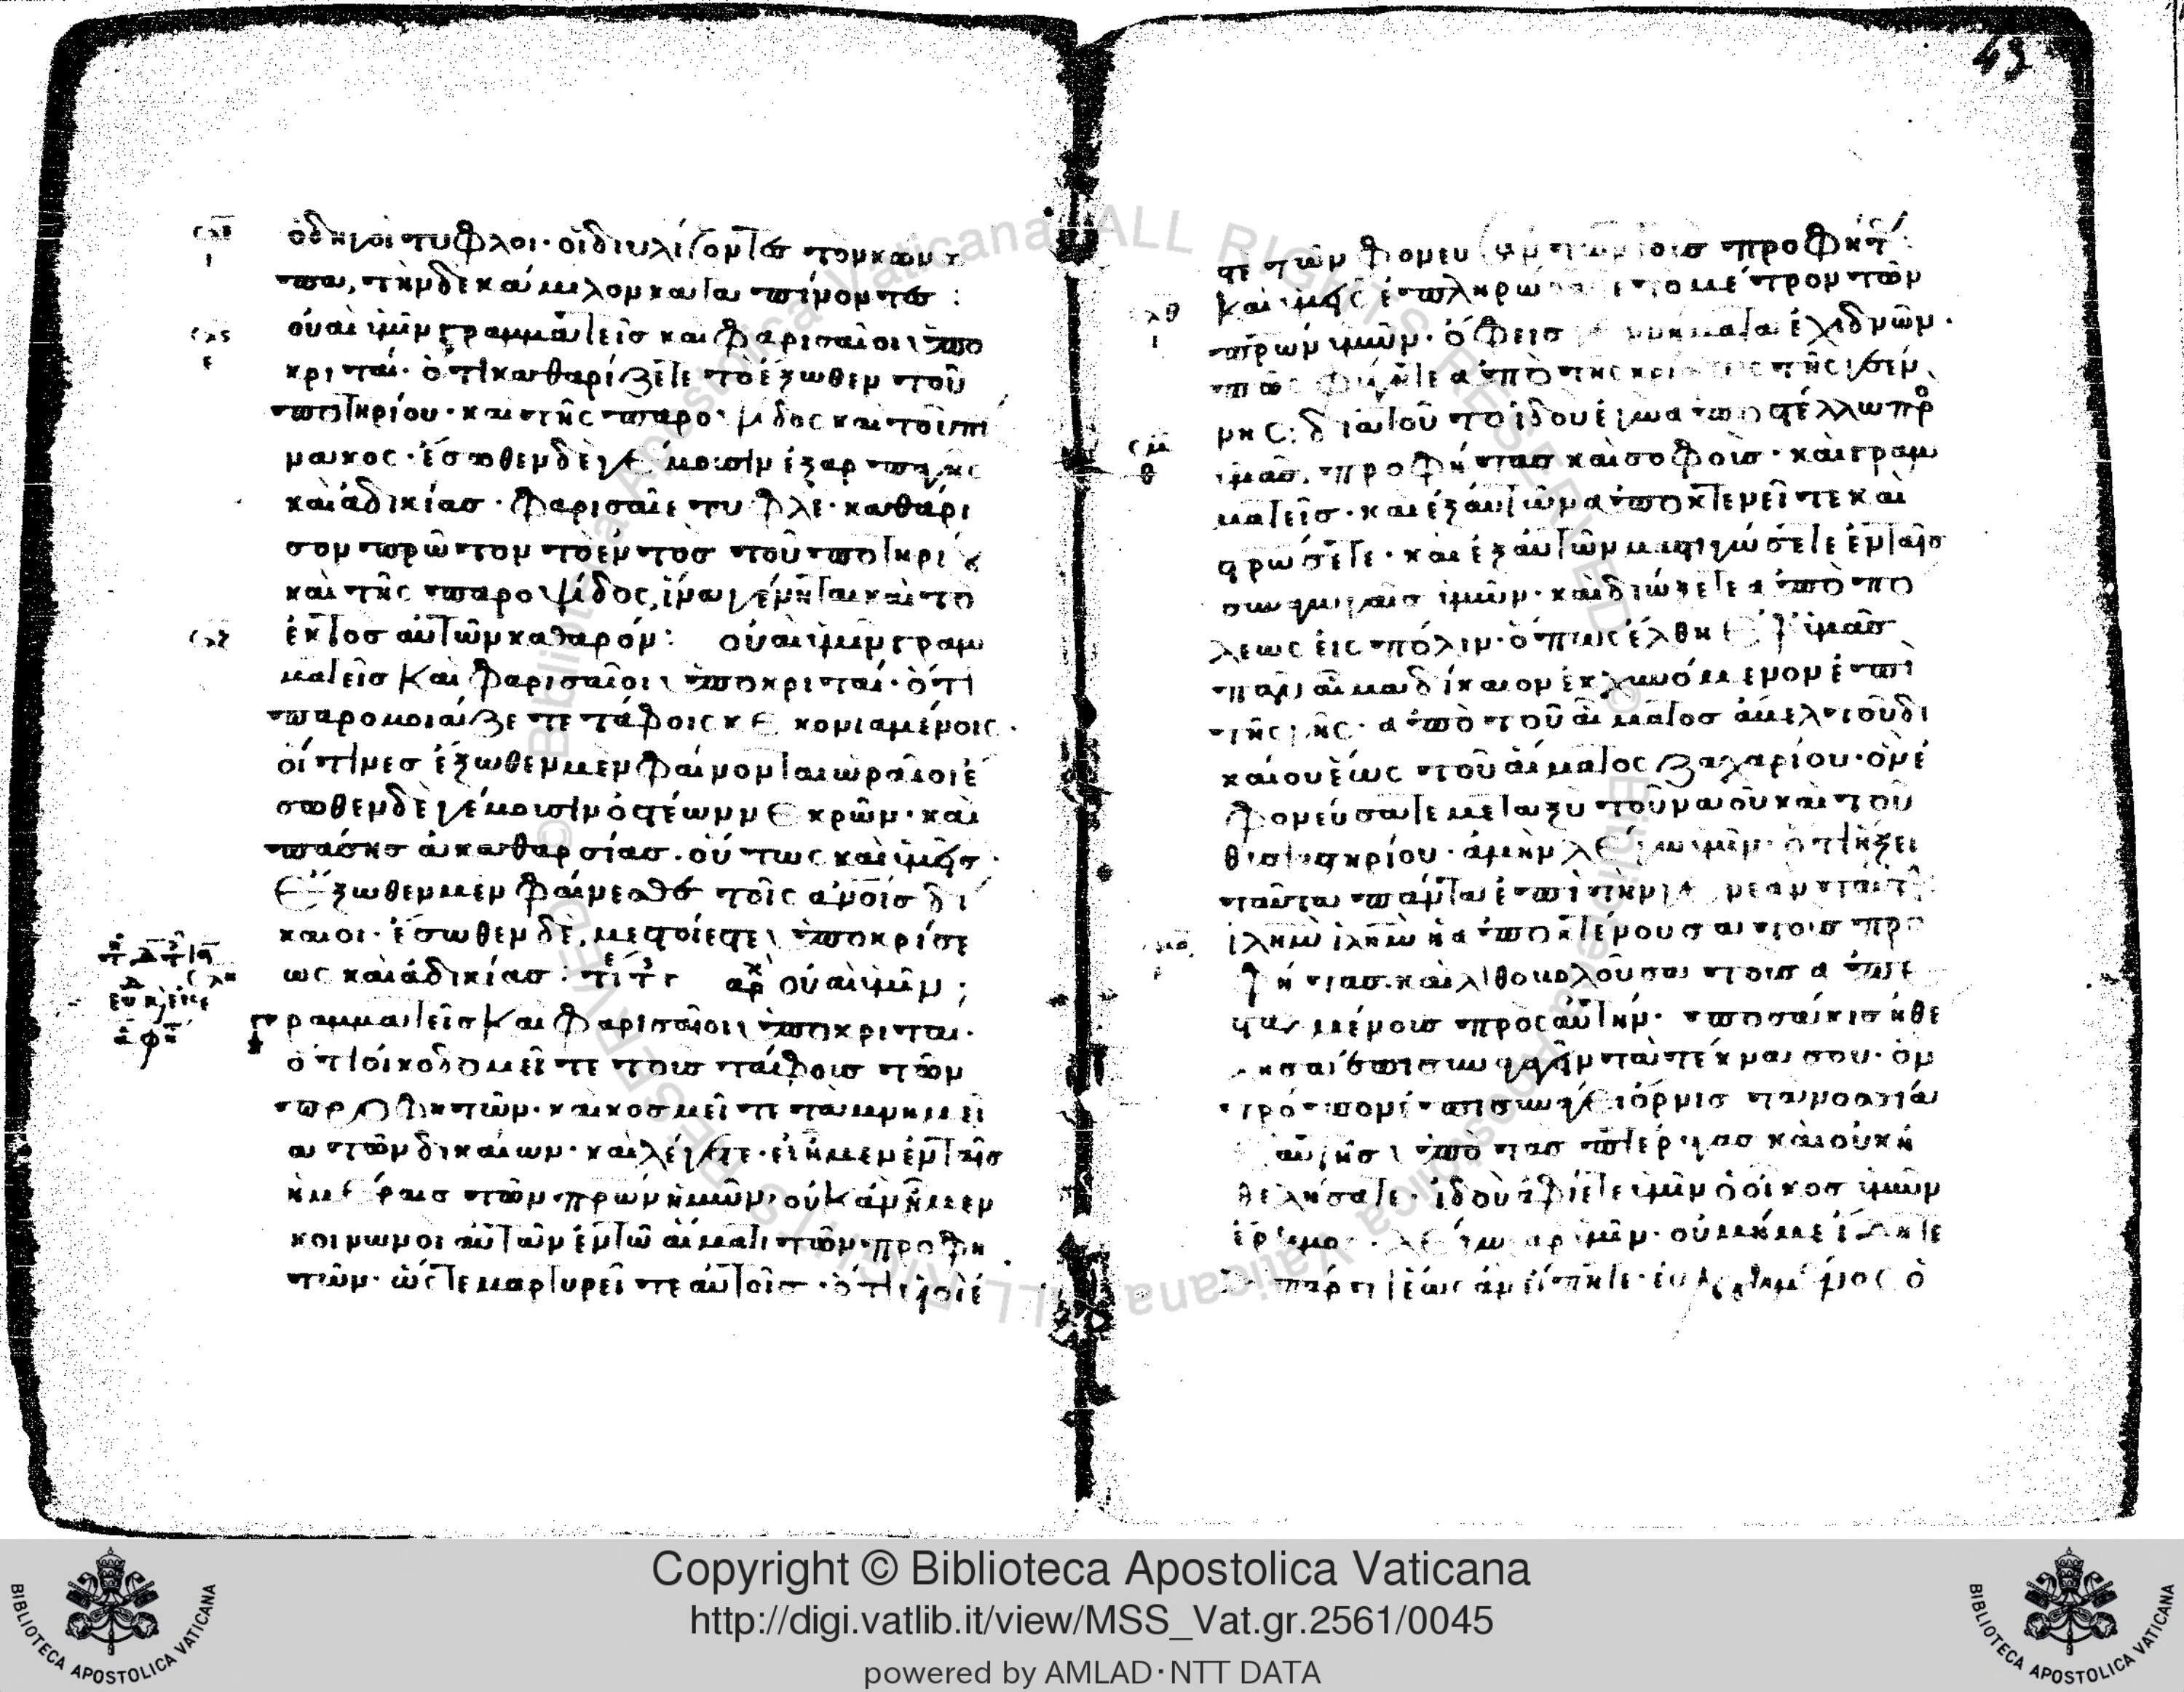 σλε
ὁδηγοὶ τυφλοι· οἱ διυλίζοντες τὸν κώνω
πα, τὴν δὲ κάμηλον καταπίνοντες :
σλς
ε
ουαὶ ὑμῖν γραμματεῖς καὶ φαρισαῖοι ὑπο
κριταί· ὅτι καθαρίζετε τὸ ἔξωθεν τοῦ
ποτηρίου· και τῆς παροψίδος και τοῦ πι
νακος· ἔσωθεν δὲ γέμουσιν ἐξ ἁρπαγῆς
καὶ ἀδικίας· φαρισαῖε τυφλὲ· καθάρι
σον πρῶτον τὸ ἐντὸς τοῦ ποτηρίου
καὶ τῆς παροψίδος, ἵνα γένηται καὶ τὸ
σλζ
ἐκτὸς αὐτῶν καθαρόν: οὐαι ὑμῖν γραμ
ματεῖς καὶ φαρισαῖοι ὑποκριταί· ὅτι
παρομοιάζετε τάφοις κεκονιαμένοις·
οἵτινες ἔξωθεν μὲν φαίνονται ὡραῖοι ἔ
σωθεν δὲ γέμουσιν ὀστέων νεκρῶν· καὶ
πάσης ἀκαθαρσίας. οὕτως καὶ ὑμεῖς·
ἔξωθεν μὲν φαίνεσθε τοῖς ἀνοις δί
καιοι· ἔσωθεν δὲ, μεστοί ἐστε ὑποκρίσε
ως καὶ ἀδικίας : αρχ οὐαὶ ὑμῖν ;
σλη
γραμματεῖς καὶ φαρισαῖοι ὑποκριται·
ὅτι οἰκοδομεῖτε τους τάφους τῶν
προφητῶν· καὶ κοσμεῖτε τὰ μνημεῖ
α τῶν δικαίων· καὶ λέγετε· εἰ ἤμεν ἐν ταῖς
ἡμέραις τῶν πρων ἡμῶν, οὐκ ἂν ἤμεν
κοινωνοι αὐτῶν ἐν τῶ αἵματι τῶν προφη
τῶν· ὥστε μαρτυρεῖτε αὐτοῖς· ὅτι υἱοί ἐ
43
στε τῶν φονευσάντων τοὺς προφήτας
σλθ
Και ὑμεῖς ἐπληρώσατε τὸ μέτρον τῶν
πατρων ὑμῶν· ὄφεις γεννήματα ἐχιδνῶν·
πῶς φύγητε ἀπὸ τῆς κρίσεως τῆς γεέν
νης: διατοῦτο ἰδοὺ ἐγὼ ἀποστέλλω πρὸ
σμ
θ
ὑμᾶς, προφήτας καὶ σοφοὺς· καὶ γραμ
ματεῖς· και ἐξ αὐτῶν ἀποκτενεῖτε καὶ
σταυρώσετε· καὶ ἐξ αὐτῶν μαστιγώσετε ἐν ταῖς
συναγωγαῖς ὑμῶν· καὶ διώξετε ἀπὸ πό
λεως εἰς πόλιν· ὅπως ἔλθη ἐφ ὑμᾶς
πᾶν αἷμα δίκαιον ἐκχυνόμενον ἐπὶ
τῆς γῆς· ἀπὸ τοῦ αἵματος ἄβελ τοῦ δι
καίου ἕως τοῦ αἵματος ζαχαρίου· ὃν ἐ
φονεύσατε μεταξὺ τοῦ ναοῦ καὶ τοῦ
θυσιαστηρίου· ἀμὴν λέγω ὑμῖν· ὅτι ἥξει
ταῦτα πάντα ἐπὶ τὴν γενεαν ταύτην
ιλημ ιλημ ἡ ἀποκτένουσα τους προ
φήτας. καὶ λιθοβολοῦσα τους ἀπε
σταλμένους πρὸς αὐτήν· ποσάκις ἠθέ
λησα ἐπισυναγαγεῖν τὰ τέκνα σου· ὃν
τρόπον ἐπισυνάγει ὄρνις τα νοσσία
αὐτῆς ὑπὸ τας πτέρυγας καὶ οὐκ ἠ
θελήσατε· ἰδοὺ ἀφίεται ὑμῖν ὁ οἶκος ὑμῶν
ἔρημος· λέγω γαρ ὑμῖν· οὐ μή με ἴδητε
ἀπάρτι ἕως ἂν εἴπητε· εὐλογημένος ὁ
Copyright © Biblioteca Apostolica Vaticana
http://digi.vatlib.it/view/MSS_Vat.gr.2561/0045
powered by AMLAD·NTT DATA